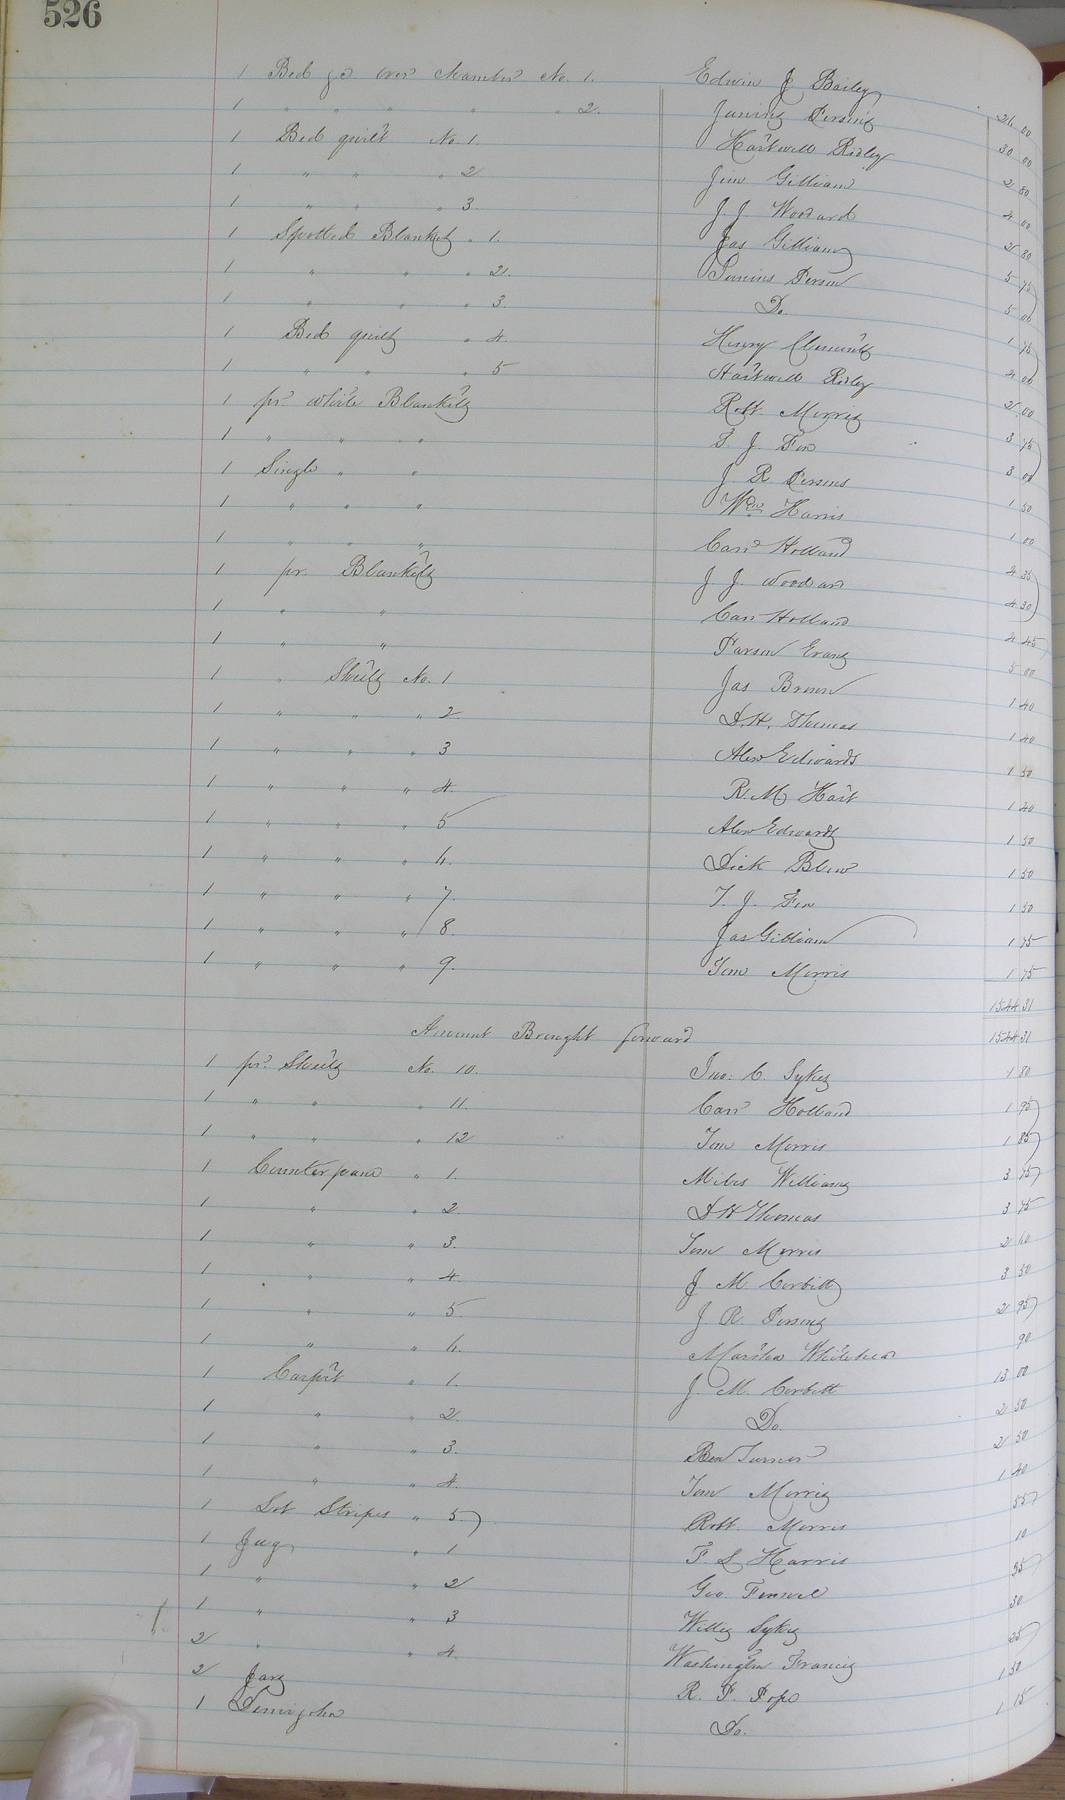 526
1 Bed &c over Chamber No. 1. Edwin J Bailey 21 00
1 " " " " " 2. Junius Persons 30 00
1 Bed quilt No. 1. Hartwell Ridley 2 80
1 " " " 2 Jim Gilliam 4 00
1 " " " 3. J. J. Woodard 2 80
1 Spotted Blankets " 1. Jas Gilliam 5 75
1 " " " 2. Junius Person 5 00
1 " " " 3. Do. 1 75
1 Bed quilts " 4. Henry Clements 4 00
1 " " " 5 Hartwell Ridley 2 00
1 pr white Blankets Robt. Morris 3 75
1 " " " T. J. 3 00
1 Single " " J R Persons 1 50
1 " " " Wm Harris 1 00
1 " " " Carr Holland 4 35
1 pr. Blankets J J. Woodard 4 30
1 " " Carr Holland 4 45
1 " " Parson Evans 5 00
1 " Sheets No. 1 Jas Brown 1 40
1 " " " 2. D. H. Thomas 1 40
1 " " " 3 Alex Edwards 1 50
1 " " " 4. R. M Hart 1 40
1 " " " 5 Alex Edwards 1 50
1 " " " 6. Dick Blow 1 50
1 " " " 7. T. J. 1 50
1 " " " 8. Jas Gilliam 1 75
1 " " " 9. Tom Morris 1 75
1544 31
Amount Brought forward 1544 31
1 pr. Sheets No. 10. Jno. C. Sykes 1 80
1 " " " 11. Carr Holland 1 95
1 " " " 12 Tom Morris 1 85
1 Counterpane " 1. Miles Williams 3 75
1 " " 2. D H Thomas 3 75
1 " " 3. Tom Morris 2 60
1 " " 4 J M. Corbitt 3 50
1 " " 5 J R. Persons 2 95
1 " " 6. Martha Whitehead 90
1 Carpet " 1. J M. Corbitt 13 00
1 " " 2. Do. 2 50
1 " " 3. Ben Turner 2 50
1 " " 4. Tom Morris 1 40
1 Lot Stripes " 5 Robt. Morris 55
1 Jug " 1 F L Harris 10
1 " " 2 Geo. 55
1 " " 3 Willey Sykes 30
2 " " 4. Washington Francis 25
2 Jars R. P. Pope 1 50
1 Demijohn Do. 1 15